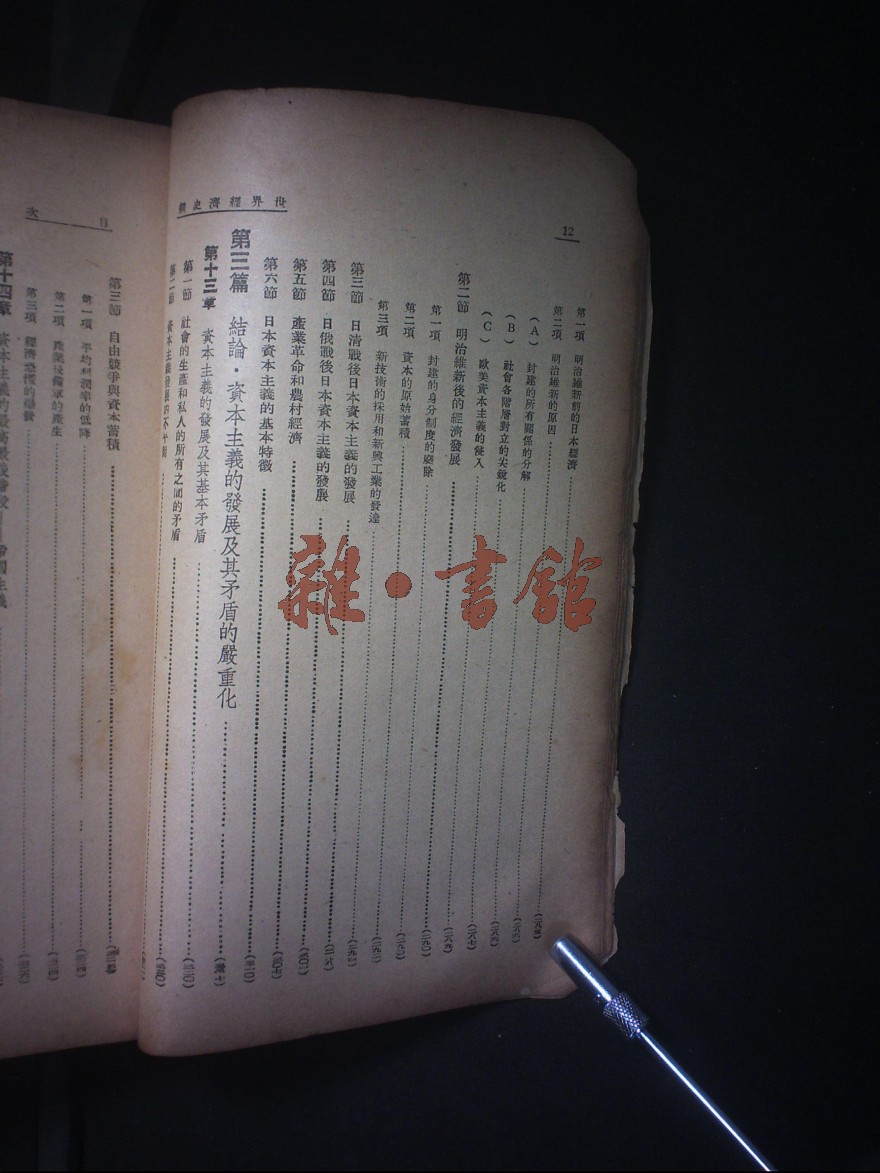 世界經濟史綱
12
第一項 明治維新前的日本經濟
第二項 明治維新的原因
(A) 封建的所有關係的分解
(B) 社會各階層對立的尖銳化
(C) 歐美資本主義的侵入
第二節 明治維新後的經濟發展
第一項 封建的身分制度的廢除
第二項 資本的原始蓄積
第三項 新技術的採用和新興工業的發達
第三節 日清戰後日本資本主義的發展
第四節 日俄戰後日本資本主義的發展
第五節 產業革命和農村經濟
第六節 日本資本主義的基本特徵
第三篇 結論·資本主義的發展及其矛盾的嚴重化
第十三章 資本主義的發展及其基本矛盾
第一節 社會的生產和私人的所有之間的矛盾
第二節 資本主義發展的不平衡
目次
第三節 自由競爭與資本蓄積
第一項 平均利潤率的低降
第二項 產業後備軍的產生
第三項 經濟恐慌的爆發
第十四章 資本主義的最高
雜·書館